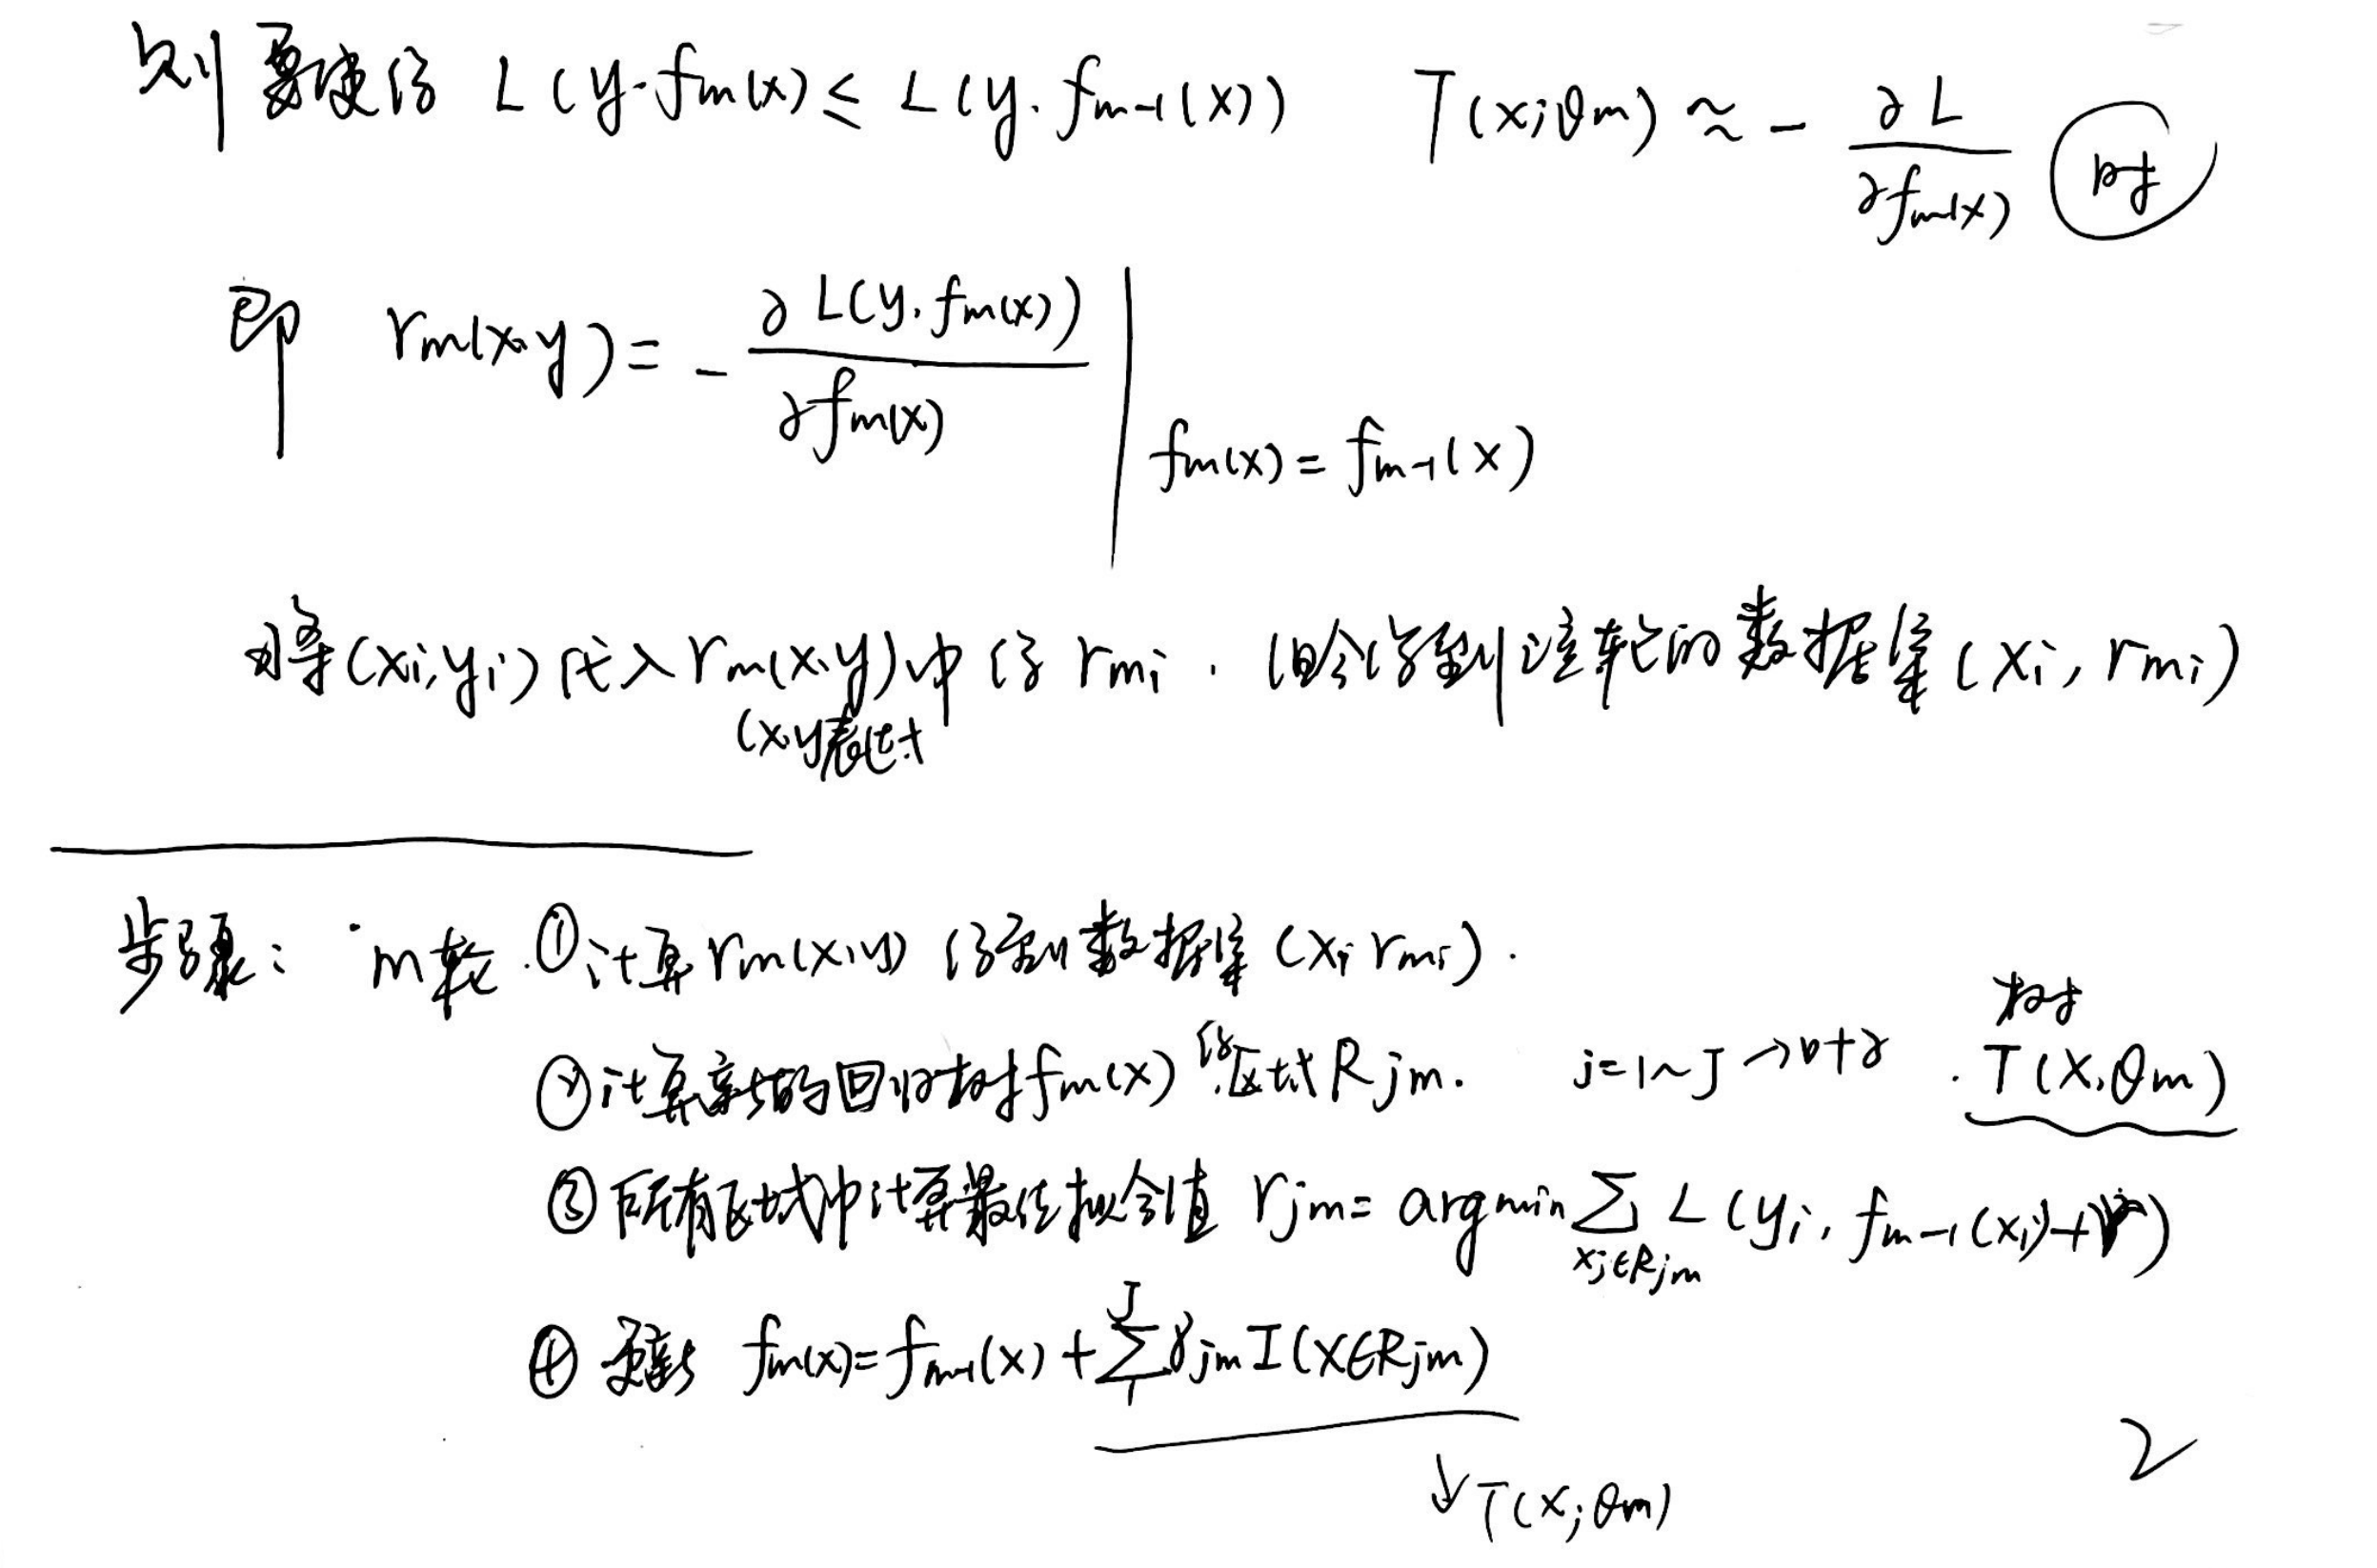 则要使得 L(y.fm(x)) ≤ L(y.fm-1(x)) T(x;θm) ≈ - ∂L/∂fm-1(x) 时
即 rm(x,y) = - ∂L(y,fm(x))/∂fm(x) | fm(x) = fm-1(x)
将(xi,yi)代入rm(x,y)中得 rmi . 得到该轮的数据集(xi, rmi)
(x,y
步骤: m轮.①计算rm(x,y) 得到数据集(xi rmi).
树
②计算新的回归树fm(x) 得区域Rjm. j=1~J . T(x,θm)
③所有区域中计算最佳拟合值 rjm= argmin∑ L(yi, fm-1(xi)+r)
xj∈Rjm
J
④更新 fm(x)=fm-1(x)+∑γjm I(x∈Rjm)
1
2
↓T(x;θm)